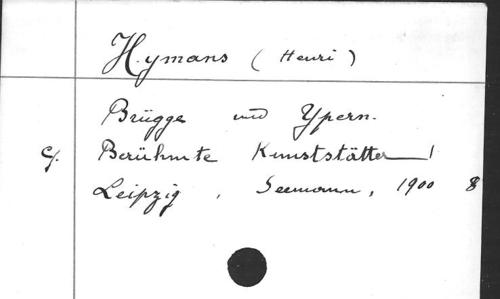 Hymans (Henri)
Brügge und Ypern.
Berühmte Kunststätten
Leipzig, Seemann, 1900 8